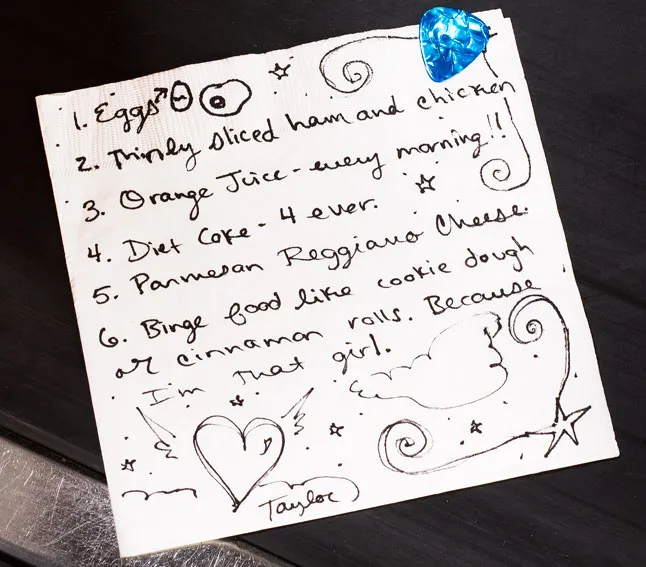 1. Eggs
2. Thinly sliced ham and chicken
3. Orange Juice - every morning!!
4. Diet Coke - 4 ever.
5. Parmesan Reggiano Cheese.
6. Binge food like cookie dough
or cinnamon rolls. Because
I'm that girl.
Taylor